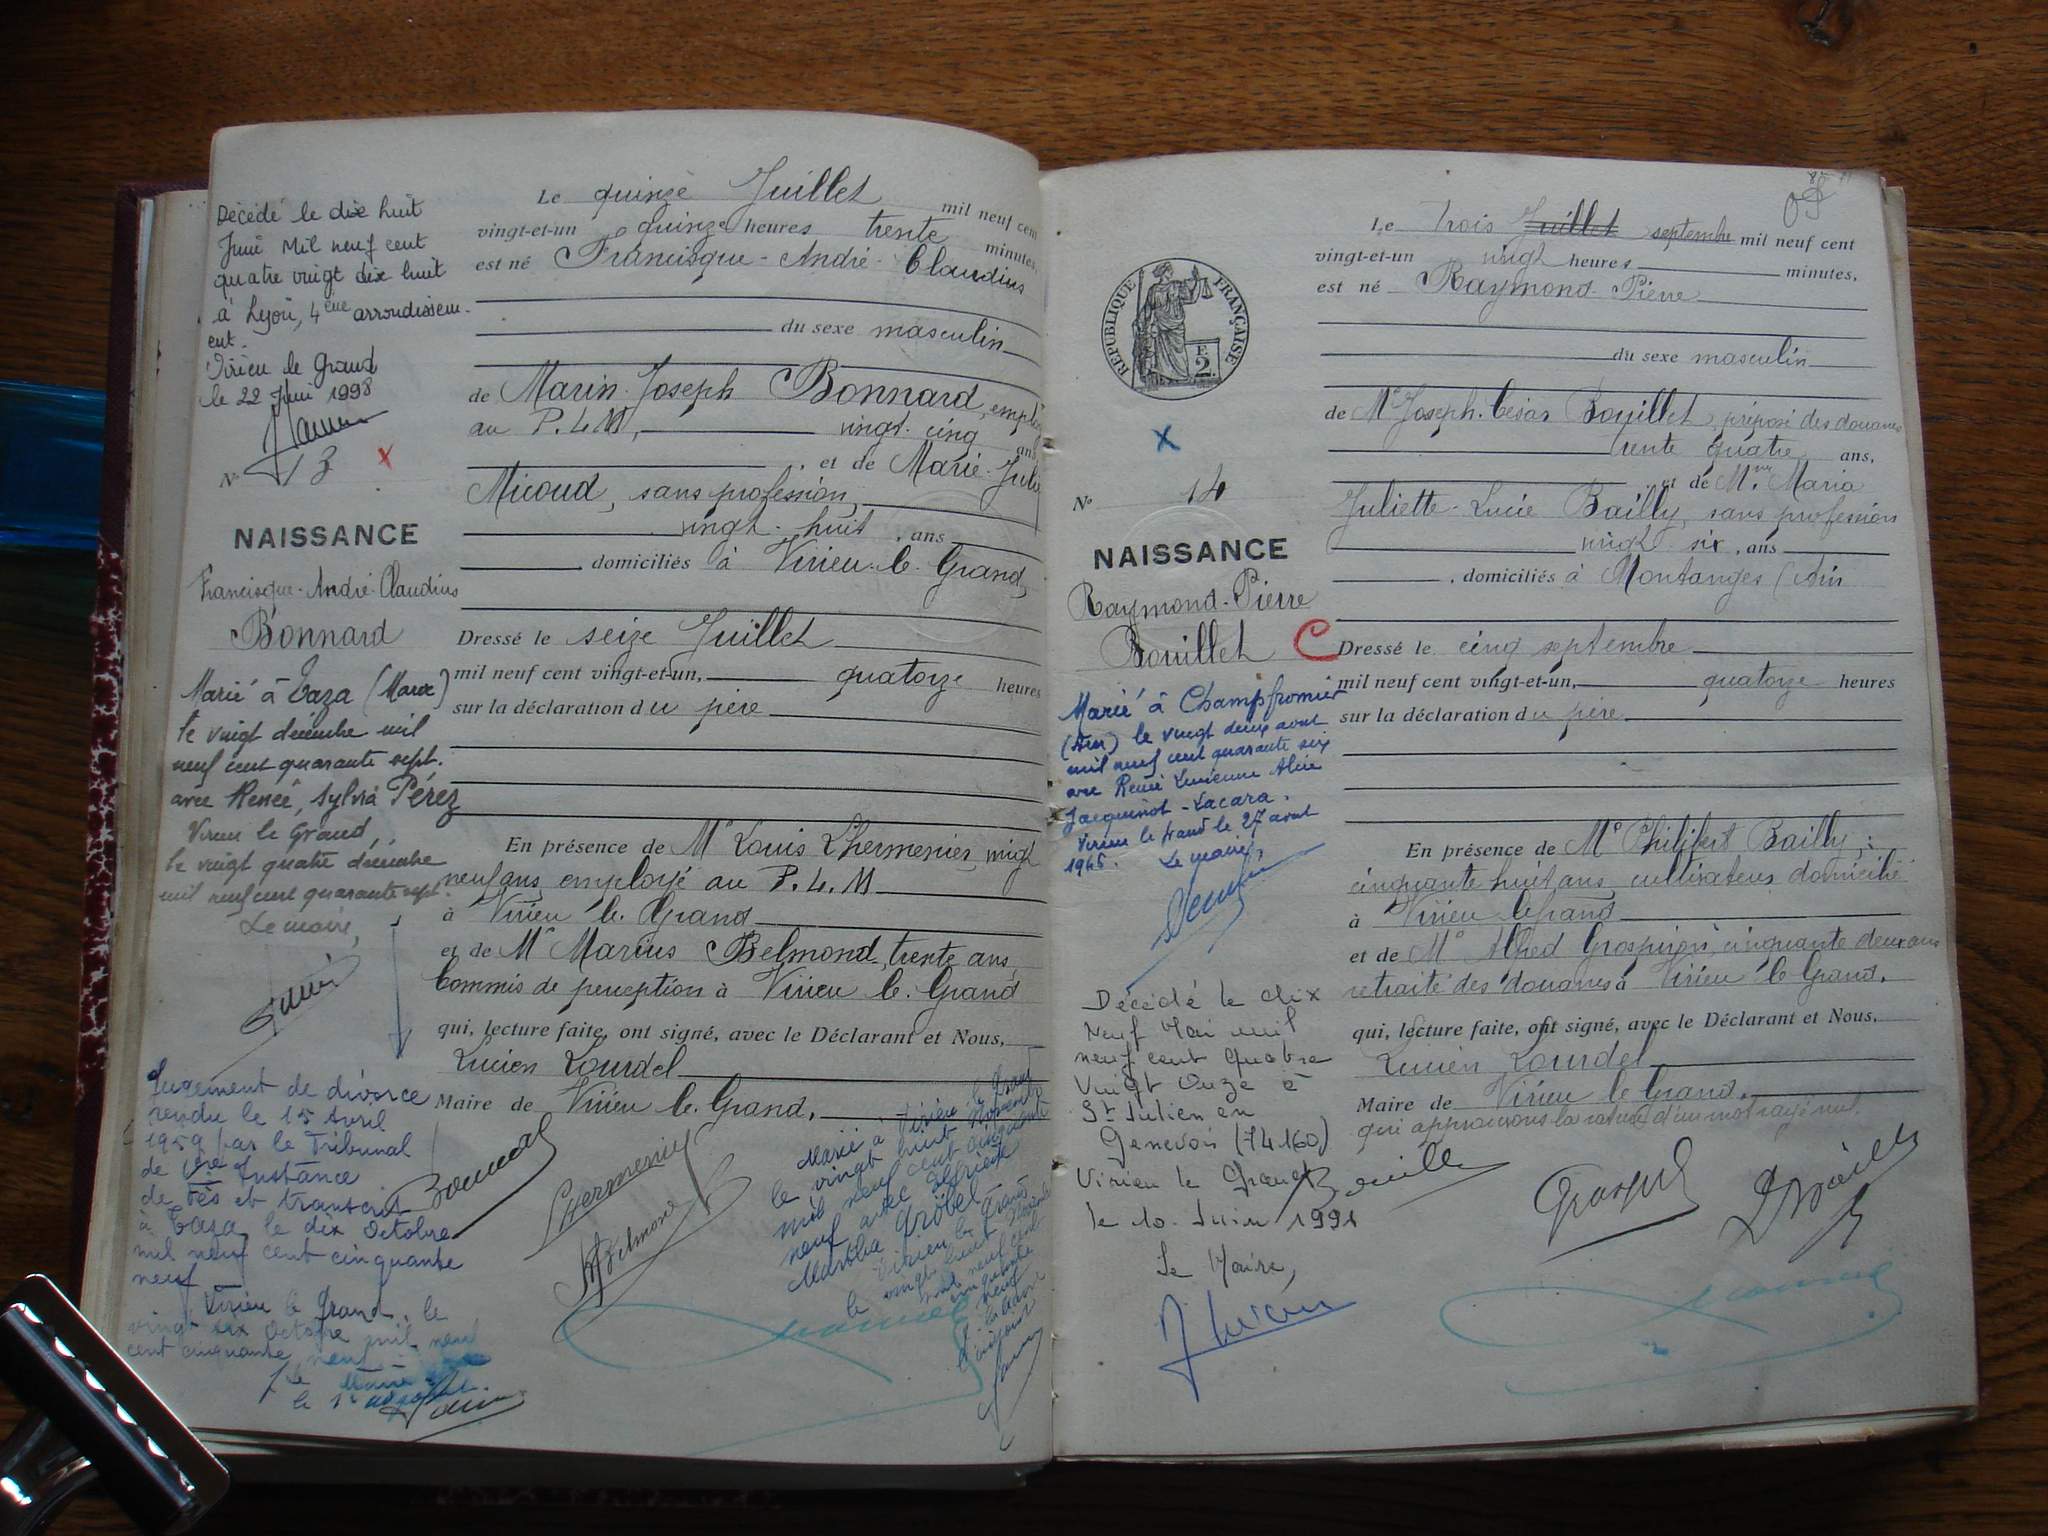 Décédé le dix huit
Juin Mil neuf cent
quatre vingt dix huit
à Lyon, 4ème arrondissem-
ent.
Virieu le Grand
le 22 Juin 1998
N° 13 X
NAISSANCE
Francisque-André-Claudius
Bonnard
Marié à Taza (Maroc)
le vingt décembre mil
neuf cent quarante sept.
avec Renée, Sylvia Pérez
Virieu le Grand,
le vingt quatre décembre
mil neuf cent quarante sept.
Le maire,
Jugement de divorce
rendu le 15 Avril
1959 par le Tribunal
de 1ère Instance
de Fès et transcrit
à Taza le dix Octobre
mil neuf cent cinquante
neuf
Virieu le Grand, le
vingt six Octobre mil neuf
cent cinquante neuf
Le Maire
Le quinze Juillet mil neuf cent
vingt-et-un quinze heures trente minutes,
est né Francisque-André-Claudius
du sexe masculin
de Marin-Joseph Bonnard, employé
au P.L.M, vingt-cinq ans
, et de Marie-Julie
Micoud, sans profession,
vingt-huit , ans
, domiciliés à Virieu-le-Grand,
Dressé le seize Juillet
mil neuf cent vingt-et-un, quatorze heures
sur la déclaration du père
En présence de Mr Louis Lhermenier, vingt
neuf ans, employé au P.L.M
à Virieu le Grand
et de Mr Marius Belmond, trente ans,
Commis de perception à Virieu le Grand
qui, lecture faite, ont signé, avec le Déclarant et Nous,
Lucien Lourdel
Maire de Virieu le Grand,
Bonnard
Lhermenier
Belmond
Marié à Virieu le Grand
le vingt huit Novembre
mil neuf cent cinquante
neuf avec
Martha Gröbel
Virieu le Grand
le vingt huit Novembre
mil neuf cent
cinquante
neuf
RÉPUBLIQUE FRANÇAISE
E
2
X
N° 14
NAISSANCE
Raymond-Pierre
Bouillet C
Marié à Champfromier
(Ain) le vingt deux aout
mil neuf cent quarante six
avec Renée Lucienne Alice
Jacquinot-Lacara.
Virieu le grand le 27 aout
Le maire,
Décédé le dix
Neuf Mai mil
neuf cent quatre
Vingt Onze à
St Julien en
Genevois (74160)
Virieu le Grand
le 10 Juin 1991
Le Maire,
Le trois Juillet septembre mil neuf cent
vingt-et-un vingt heures minutes,
est né Raymond-Pierre
du sexe masculin
de Mr Joseph-César Bouillet, préposé des douanes
trente quatre ans,
, et de Mme Maria
Juliette-Lucie Bailly, sans profession
vingt-six , ans
, domiciliés à Montanges (Ain
Dressé le cinq septembre
mil neuf cent vingt-et-un, quatorze heures
sur la déclaration du père
En présence de Mr Philibert Bailly,
cinquante huit ans, cultivateur domicilié
à Virieu le grand
et de Mr Alfred Grospiron, cinquante deux ans
retraité des douanes à Virieu le Grand,
qui, lecture faite, ont signé, avec le Déclarant et Nous,
Lucien Lourdel
Maire de Virieu le Grand,
qui approuvons la rature d'un mot rayé nul.
Bouillet